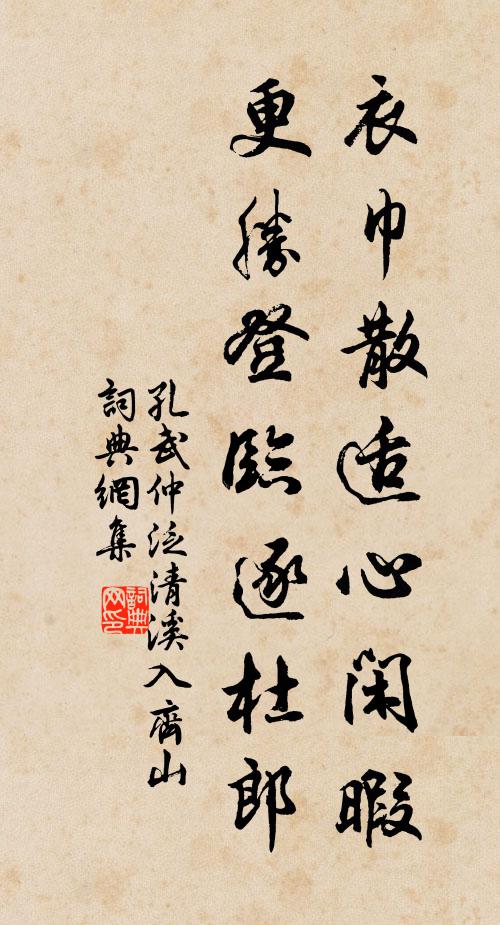 衣巾散适心閑暇
更勝登臨逐杜郎
孔武仲泛清溪入齊山
詞典網集
詞典网印